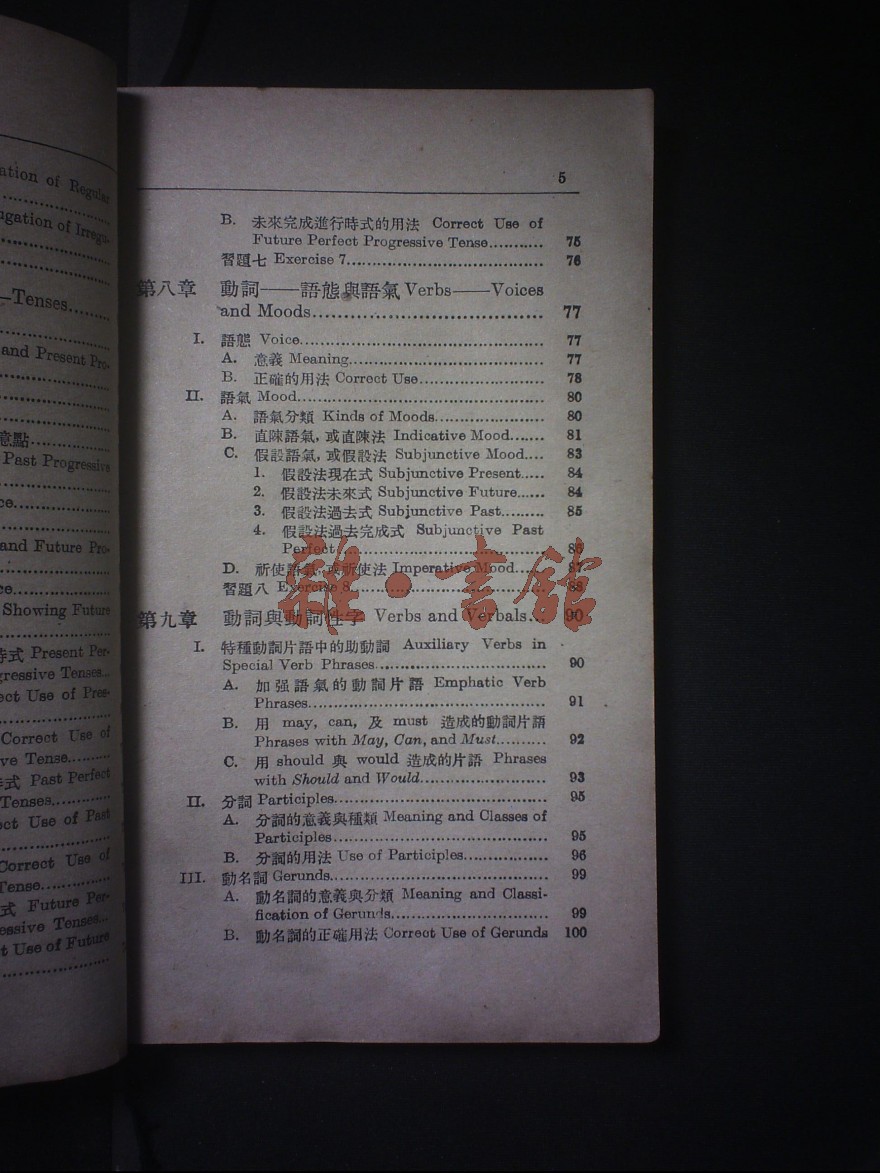 ation of Regular
ugation of Irregu-
—Tenses
and Present Pro-
意點
Past Progressive
ce
and Future Pro-
ce
Showing Future
時式 Present Per-
gressive Tenses
ect Use of Pres-
Correct Use of
ve Tense
時式 Past Perfect
Tenses
ect Use of Past
Correct Use of
Tense
式 Future Per-
essive Tenses
t Use of Future
5
B. 未來完成進行時式的用法 Correct Use of
Future Perfect Progressive Tense........... 75
習題七 Exercise 7........... 76
第八章 動詞——語態與語氣 Verbs——Voices
and Moods........... 77
I. 語態 Voice........... 77
A. 意義 Meaning........... 77
B. 正確的用法 Correct Use........... 78
II. 語氣 Mood........... 80
A. 語氣分類 Kinds of Moods........... 80
B. 直陳語氣,或直陳法 Indicative Mood....... 81
C. 假設語氣,或假設法 Subjunctive Mood.... 83
1. 假設法現在式 Subjunctive Present..... 84
2. 假設法未來式 Subjunctive Future...... 84
3. 假設法過去式 Subjunctive Past......... 85
4. 假設法過去完成式 Subjunctive Past
Perfect........... 86
D. 祈使語氣,或祈使法 Imperative Mood...... 87
習題八 Exercise 8........... 88
雜·書館
第九章 動詞與動詞性字 Verbs and Verbals... 90
I. 特種動詞片語中的助動詞 Auxiliary Verbs in
Special Verb Phrases........... 90
A. 加强語氣的動詞片語 Emphatic Verb
Phrases........... 91
B. 用 may, can, 及 must 造成的動詞片語
Phrases with May, Can, and Must.......... 92
C. 用 should 與 would 造成的片語 Phrases
with Should and Would........... 93
II. 分詞 Participles........... 95
A. 分詞的意義與種類 Meaning and Classes of
Participles........... 95
B. 分詞的用法 Use of Participles........... 96
III. 動名詞 Gerunds........... 99
A. 動名詞的意義與分類 Meaning and Classi-
fication of Gerunds........... 99
B. 動名詞的正確用法 Correct Use of Gerunds 100